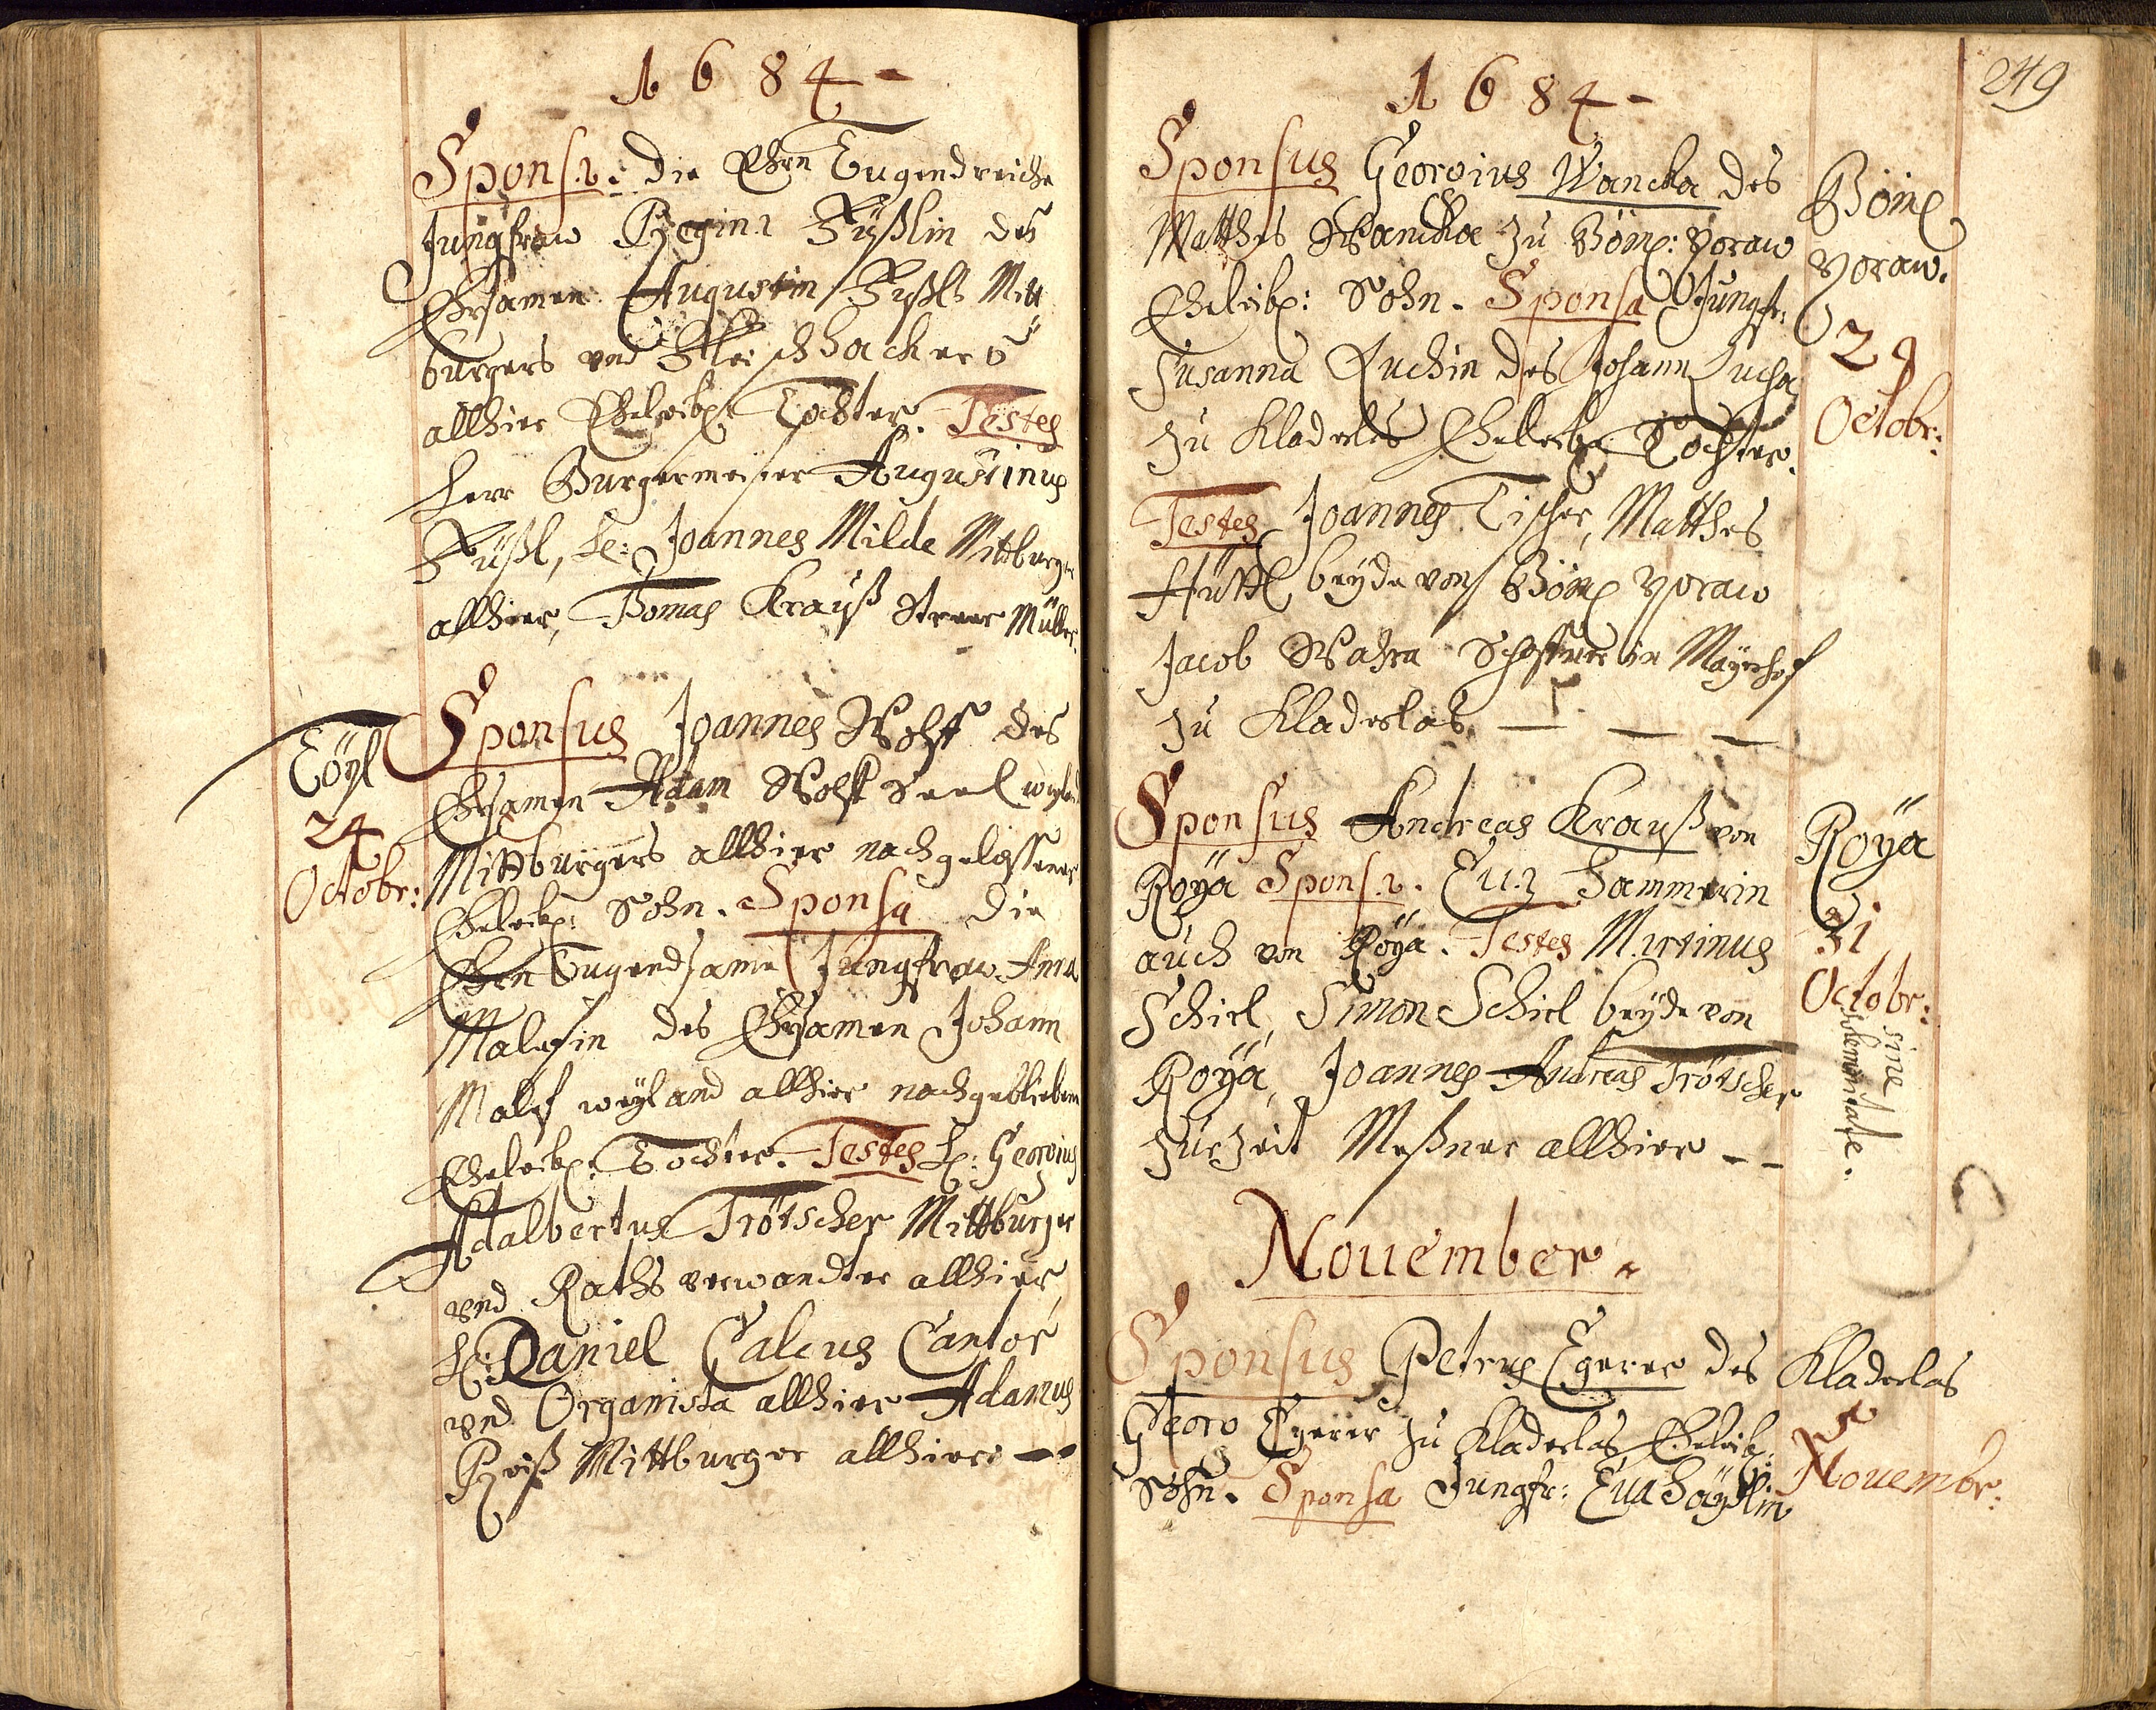 1684-
Sponsa: die Ehrn Tugendreiche
Jungfraw Regina Füßlin des
Ehrsamen Augustin Füßls Mitt
burgers vnd Fleischhackers
allhier Eheleibl: Tochter. Testes
Herr Burgermeister Augustinus
Füßl, He: Joannes Milde Mittburger
allhier, Thomas Krauß Müller.
Töpl
24
Octobr:
Sponsus Joannes Wolff des
Ehrsamen Adam Wolff Seel weyland
Mittburgers allhier nachgelassener
Eheleibl: Sohn. Sponsa die
Ehrn Tugendsame Jungfraw Anna
des Ehrsamen Johann
weyland allhier nachgebliebene
Eheleibl: Tochter. Testes H: Georgius
Adalbertus Trötscher Mittburger
vnd Raths verwandter allhier,
H: Daniel Calcus Cantor
vnd Organista allhier Adamus
Reiß Mittburger allhier --
1684-
249
Sponsus Georgius Wancka des
Matthes Wancka zu Böm: Yoraw
Eheleibl: Sohn. Sponsa Jungfr:
Susanna Luchin des Johann Lucha
zu Kladerlas Eheleibl: Tochter.
Testes Joannes Tischer, Matthes
Hüttl beyde von Böm Yoraw
Jacob Wahra Schaffner in Mayrhof
zu Kladerlas. — — —
Böm
Yoraw.
29
Octobr:
Sponsus Andreas Krauß von
Roÿa Sponsa. Eua Hammerin
auch von Roÿa. Testes Martinus
Schicl, Simon Schicl beyde von
Roÿa, Joannes Andreas Trötscher
zur Zeit Meßner allhier --
Roÿa
31
Octobr:
sine
solemnitate.
Nouember.
Sponsus Petrus Egerer des
Georg Egerer zu Kladerlas Eheleibl:
Sohn. Sponsa Jungfr: Eua
Kladerlas
5
Nouembr: